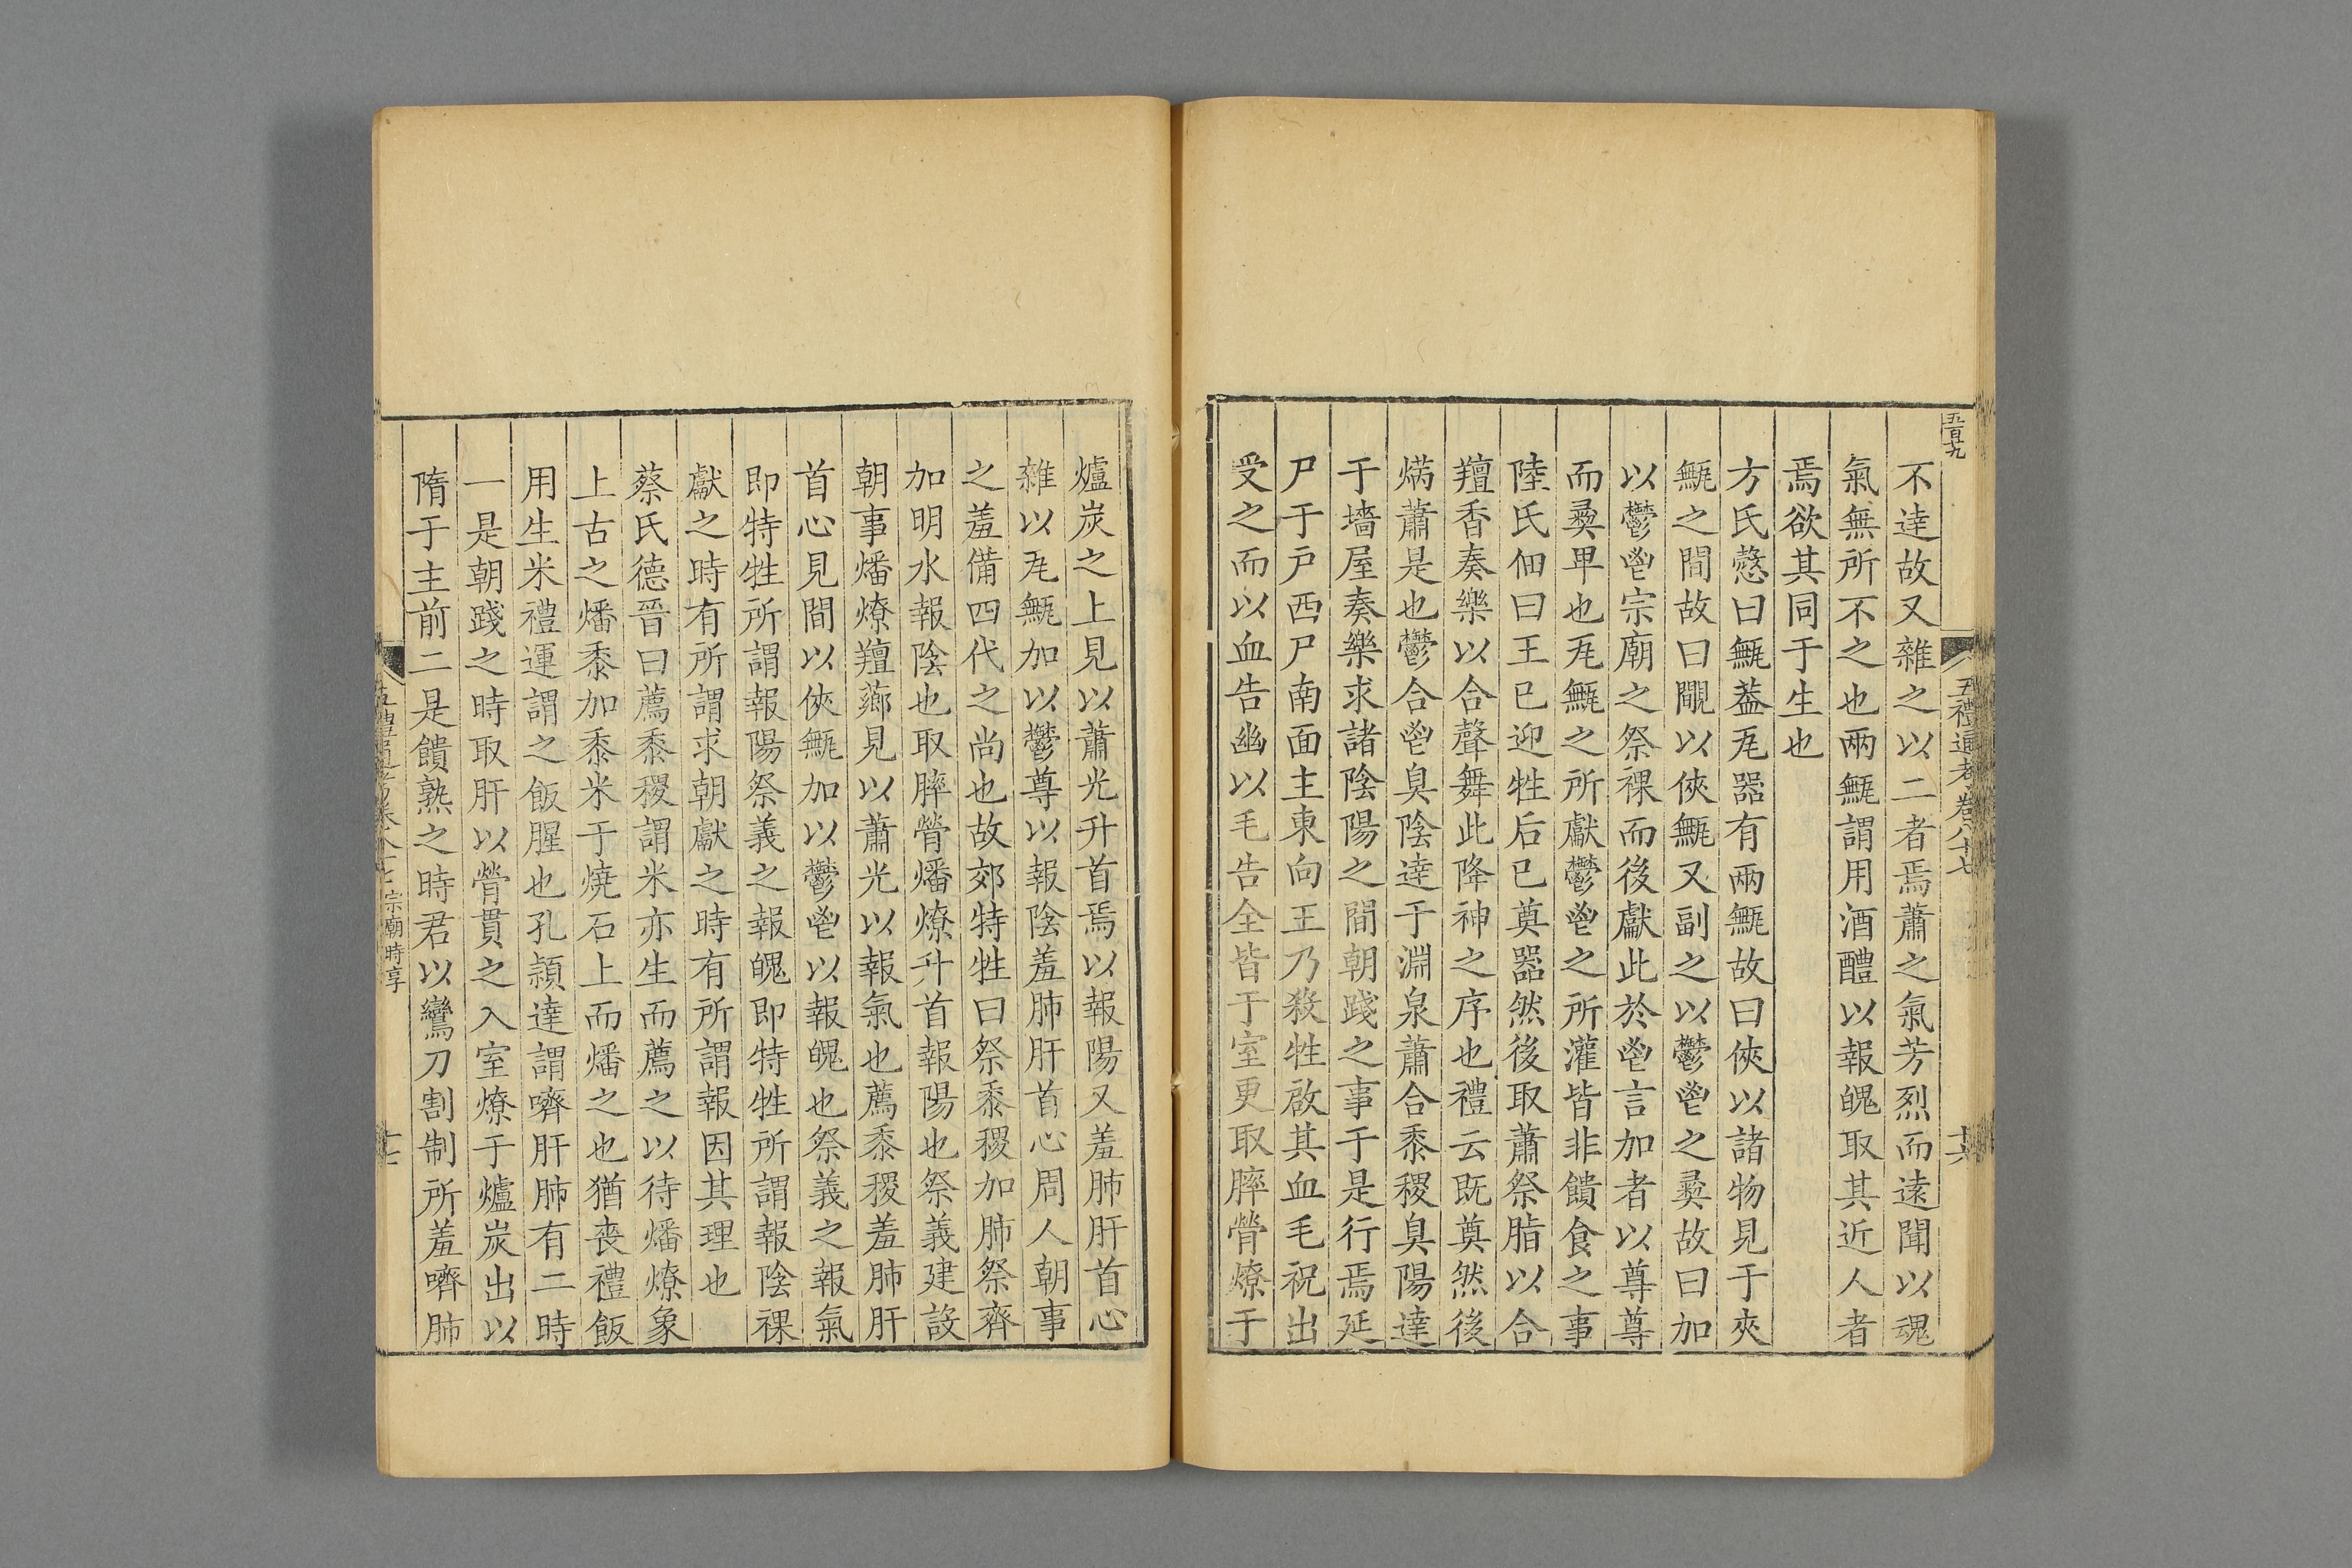 五百九
五禮通考卷八十七
十六
不逹故又雜之以二者焉蕭之氣芳烈而遠聞以魂
氣無所不之也兩甒謂用酒醴以報魄取其近人者
焉欲其同于生也
方氏慤曰甒葢瓦器有兩甒故曰俠以諸物見于夾
甒之間故曰覵以俠甒又副之以鬱鬯之彛故曰加
以鬱鬯宗廟之祭祼而後獻此於鬯言加者以尊尊
而彛卑也瓦甒之所獻鬱鬯之所灌皆非饋食之事
陸氏佃曰王已迎牲后已奠器然後取蕭祭脂以合
羶香奏樂以合聲舞此降神之序也禮云既奠然後
焫蕭是也鬱合鬯臭陰逹于淵泉蕭合黍稷臭陽達
于墻屋奏樂求諸陰陽之間朝踐之事于是行焉延
尸于戸西尸南面主東向王乃殺牲啟其血毛祝出
受之而以血告幽以毛告全皆于室更取膟膋燎于
爐炭之上見以蕭光升首焉以報陽又羞肺肝首心
雜以瓦甒加以鬱尊以報陰羞肺肝首心周人朝事
之羞備四代之尚也故郊特牲曰祭黍稷加肺祭齊
加明水報陰也取膟膋燔燎升首報陽也祭義建設
朝事燔燎羶薌見以蕭光以報氣也薦黍稷羞肺肝
首心見間以俠甒加以鬱鬯以報魄也祭義之報氣
即特牲所謂報陽祭義之報魄即特牲所謂報陰祼
獻之時有所謂求朝獻之時有所謂報因其理也
蔡氏德晉曰薦黍稷謂米亦生而薦之以待燔燎象
上古之燔黍加黍米于燒石上而燔之也猶喪禮飯
用生米禮運謂之飯腥也孔穎達謂嚌肝肺有二時
一是朝踐之時取肝以膋貫之入室燎于爐炭出以
隋于主前二是饋熟之時君以鸞刀割制所羞嚌肺
五禮通考卷八十七 宗廟時享
十七